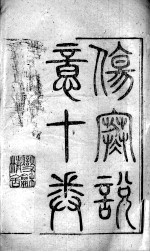 傷寒說
意十卷